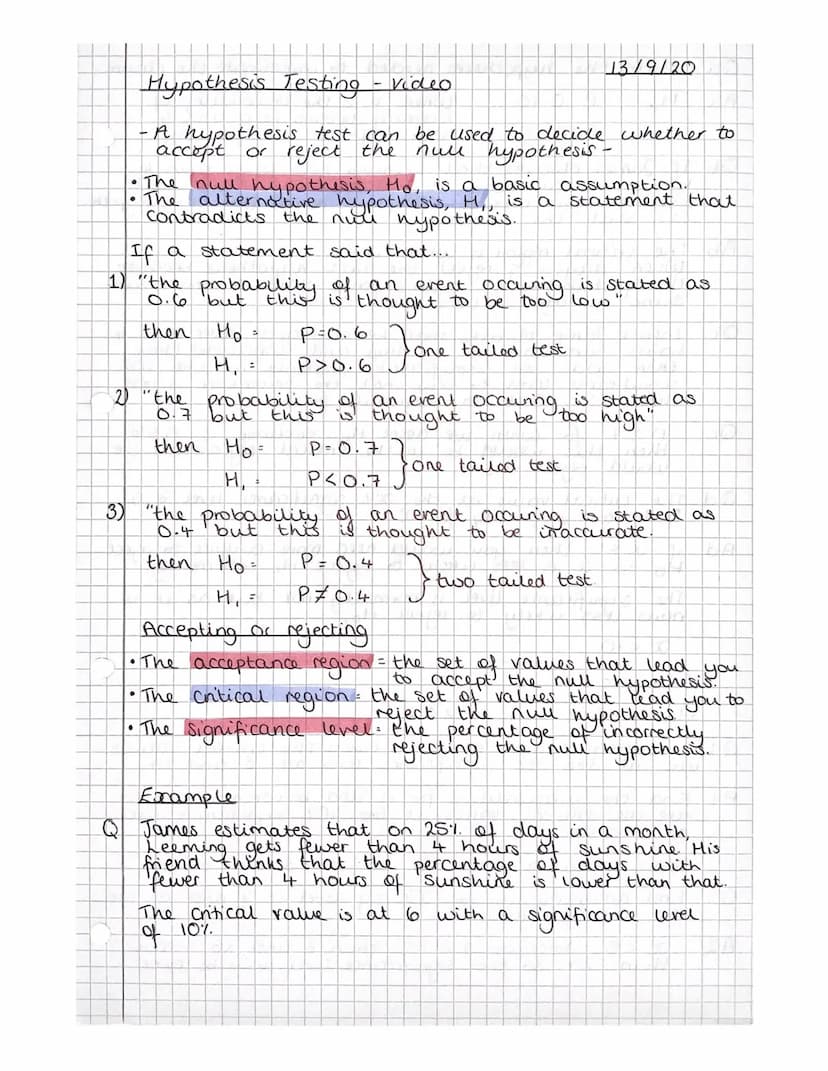 13/9/20
Hypothesis Testing - video
- A hypothesis test can be used to decide whether to
accept or reject the null hypothesis -
• The null hypothesis, H₀, is a basic assumption.
• The alternative hypothesis, H₁, is a statement that
contradicts the null hypothesis.
If a statement said that...
1) "the probability of an event occuring is stated as
0.6 but this is thought to be too low"
then H₀ = P=0.6
H₁ = P>0.6 } one tailed test
2) "the probability of an event occuring is stated as
0.7 but this is thought to be too high"
then H₀ = P=0.7
H₁ = P<0.7 } one tailed test
3) "the probability of an event occuring is stated as
0.4 but this is thought to be inaccurate.
then H₀ = P = 0.4
H₁ = P≠0.4 } two tailed test
Accepting or rejecting
• The acceptance region = the set of values that lead you
to accept the null hypothesis.
• The critical region = the set of values that lead you to
reject the null hypothesis
• The significance level = the percentage of incorrectly
rejecting the null hypothesis.
Example
Q James estimates that on 25% of days in a month,
Leeming gets fewer than 4 hours of sunshine. His
friend thinks that the percentage of days with
fewer than 4 hours of sunshine is lower than that.
The critical value is at 6 with a significance level
of 10%.